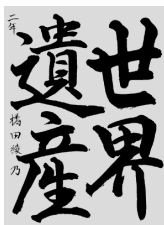 世界
遺産
二年 橘田綾乃